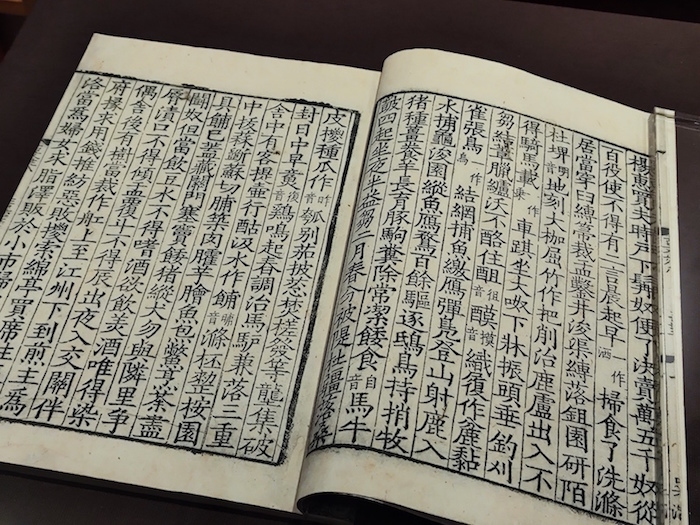 楊惠買夫時戶下髯奴便了決賣萬五千奴從
百役使不得有二言晨起早一作洒掃食了洗滌
居當穿臼縛箒裁盂鑿井浚渠縛落鉏園研陌
杜埤地刻大枷屈竹作把削治鹿盧出入不
得騎馬載一作乘車踑坐大呶下牀振頭垂釣刈
芻結葦臘纑沃不酪住酤醭音織履作麄黏
雀張鳥一作烏結網捕魚繳鴈彈鳧登山射鹿入
水捕龜浚園縱魚鴈鶩百餘驅逐鴟鳥持捎牧
猪種薑養芋長育豚駒糞除常潔餧食音自馬牛
鼓四起坐夜半益芻二月春分被隄杜疆落桑
皮㯶種瓜作瓠別茄披葱焚槎發芋壟集破
封日中早鷄鳴起舂調治馬驢兼落三重
舍中有客提壺行酤汲水作餔音滌杯整按園
中拔蒜斷蘇切脯築肉臛芋膾魚炰鱉烹茶盡
具餔已蓋藏關門塞竇餧猪縱犬勿與隣里爭
鬬奴但當飯豆飲水不得嗜酒欲飲美酒唯得染
脣漬口不得傾盂覆斗不得晨出夜入交關伴
偶舍後有樹當裁作舡上至江州下到前主爲
府掾求用錢推紡惡敗㯶索綿亭買席往
洛當爲婦女求脂澤販於小市歸